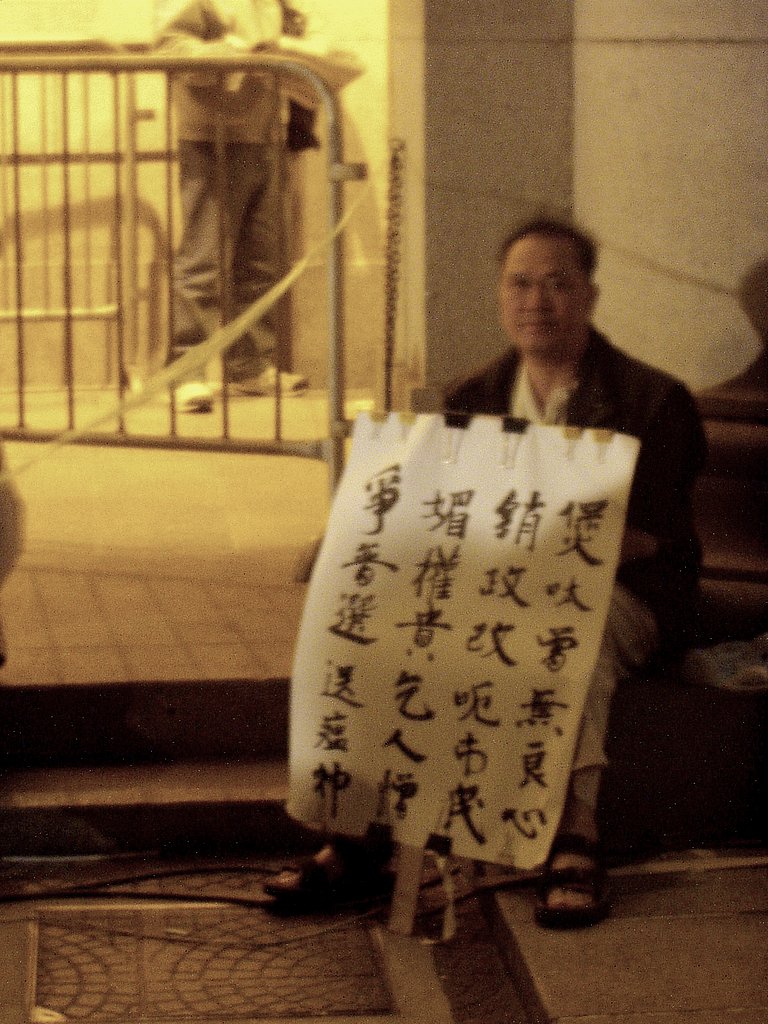 煲呔曾無良心
銷政改呃市民
媚權貴乞人憎
爭普選送瘟神